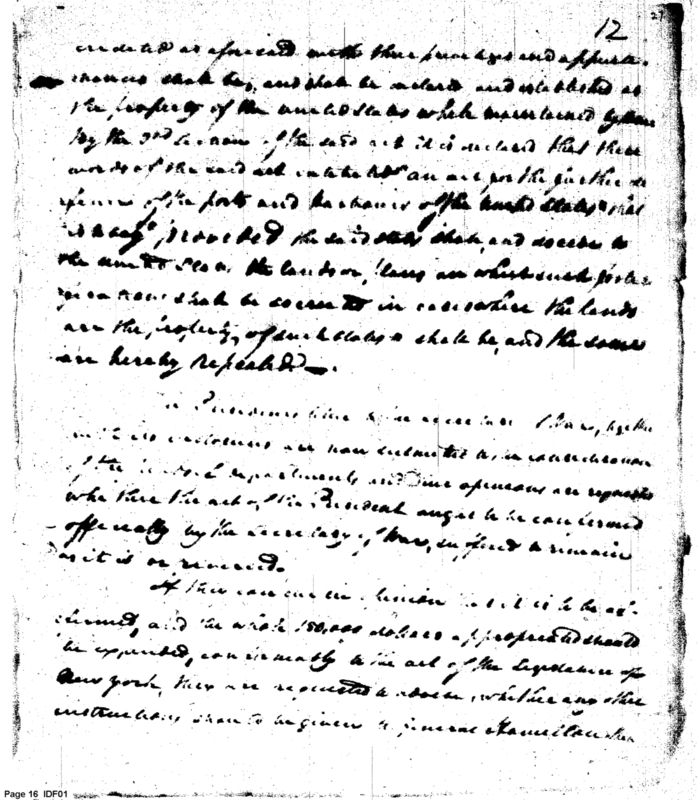 12
27
erected as aforesaid with their privileges and appurte-
nances shall be, and shall be declared and established as
the property of the united states while maintained by them
By the 3rd section of the said act it is declared that these
words of the said act intitled "an act for the further de
fence of the ports and harbours of the United States" that
is to say "provided the said states shall, and do cede to
the united States the lands or places on which such forti-
fications shall be erected in cases where the lands
are the property of such states" shall be, and the same
are hereby repealed —.
The Presidents letter to the secretary of War, together
with its inclosures are now submitted to the consideration
of the several departments and their opinions are requested
whether the act of the President ought to be confirmed
officially by the secretary of War, suffered to remain
as it is or reversed.
If they concur in opinion that it is to be af-
firmed, and the whole 150,000 dollars appropriated should
be expended, conformably to the act of the Legislature of
New york, they are requested to advise, whether any other
instructions ought to be given to general Hamilton than
Page 16 IDF01